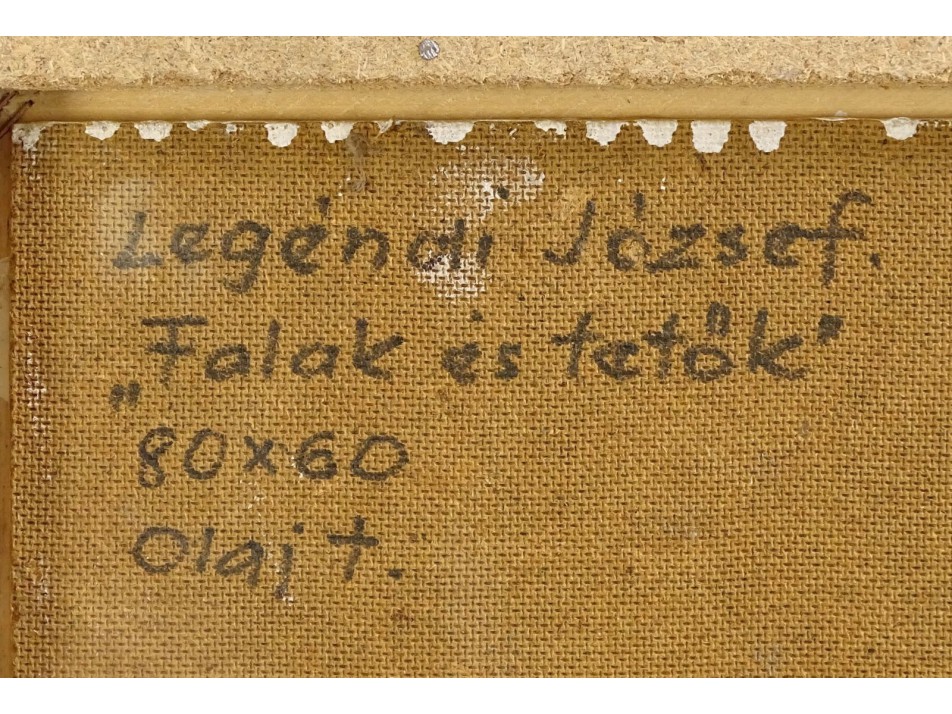 Legéndi József.
„Falak és tetők"
80x60
Olaj t.